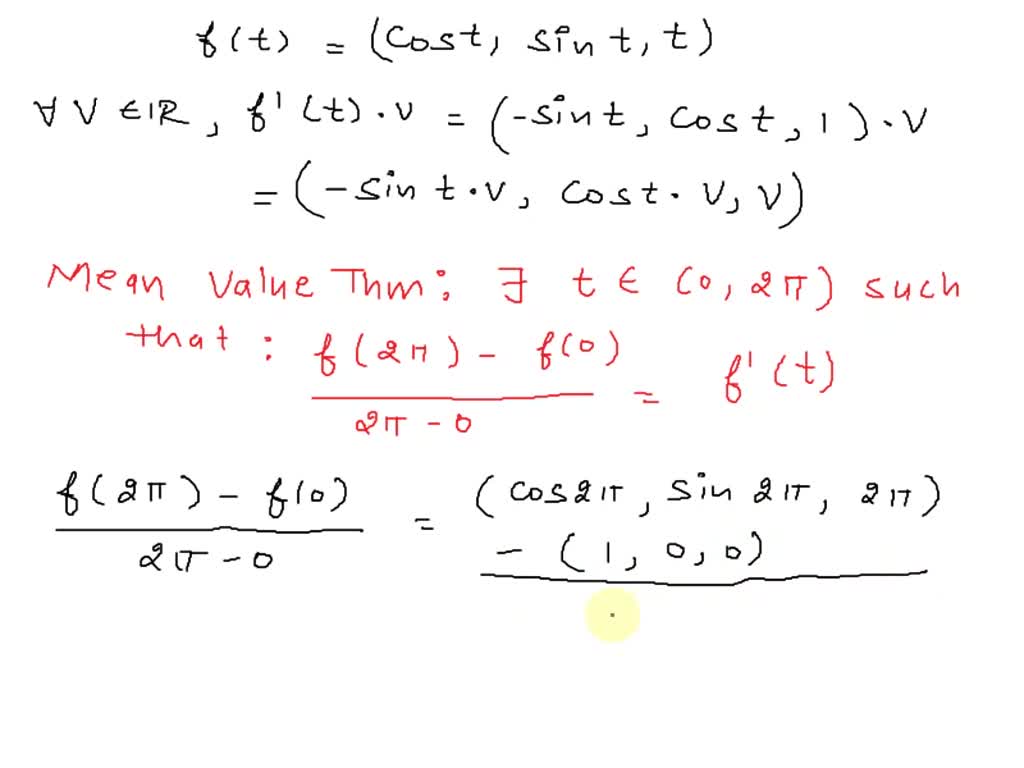 f(t) = (cost, sint, t)
∀ V ∈ IR, f'(t)·v = (-sint, cost, 1)·v
= (-sin t·v, cost·v, v)
Mean Value Thm: ∃ t ∈ (0, 2π) such
that: f(2π) - f(0) / 2π - 0 = f'(t)
f(2π) - f(0) / 2π - 0 = (cos2π, sin 2π, 2π) - (1, 0, 0)